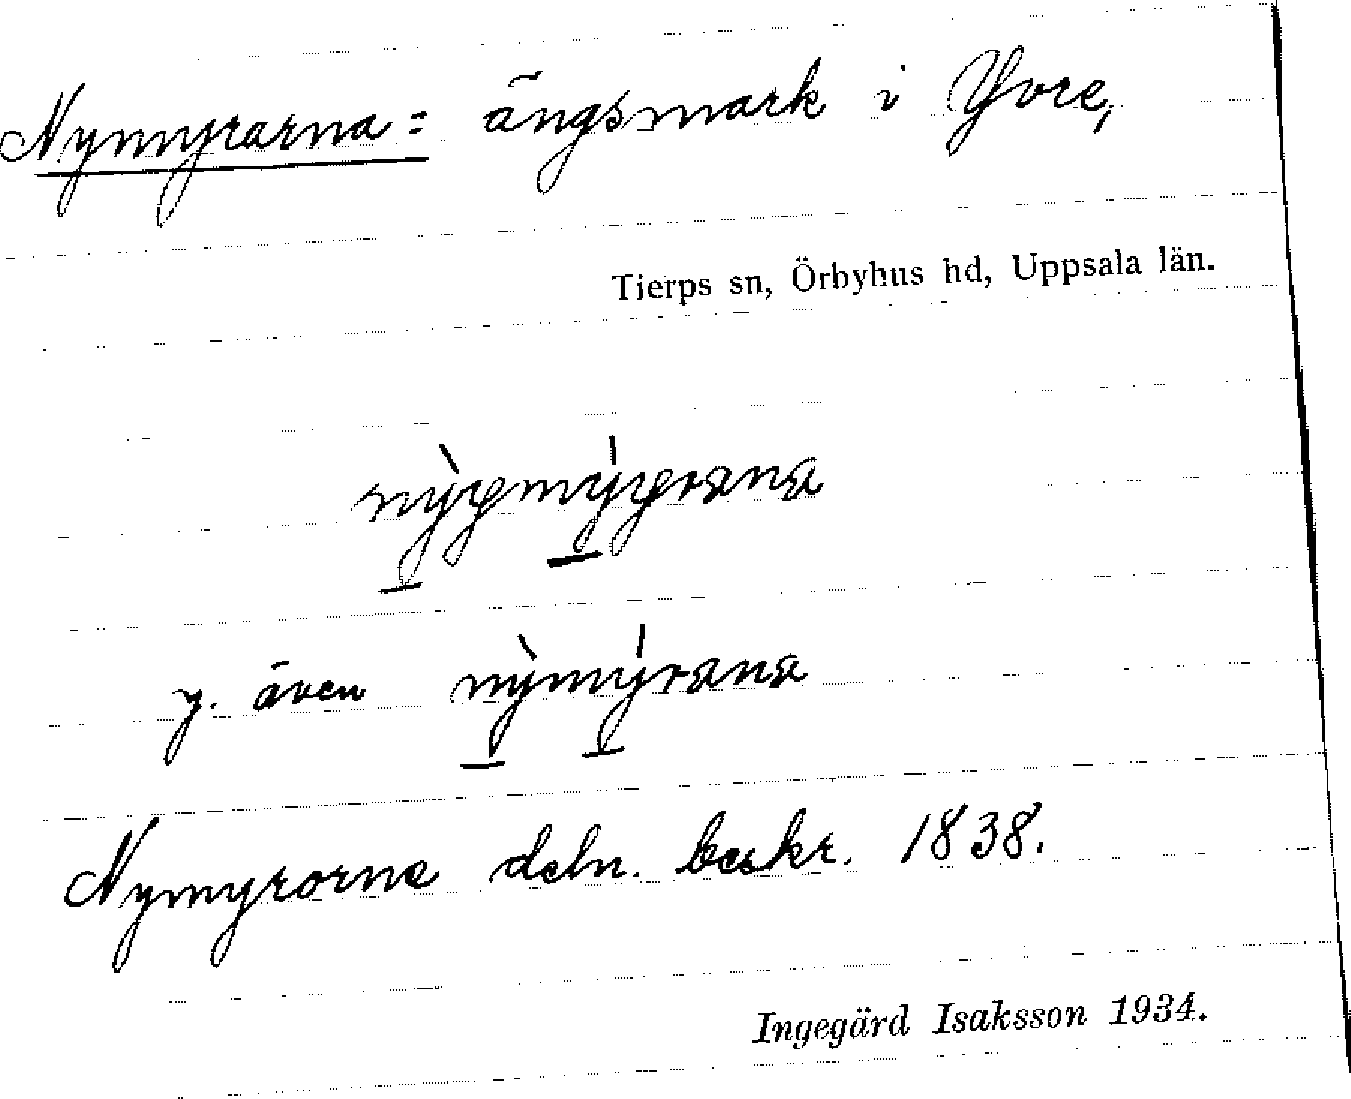 Nymyrarna = ängsmark i Yvre,
Tierps sn, Örbyhus hd, Uppsala län.
y. även
Nymyrorne deln. beskr. 1838.
Ingegärd Isaksson 1934.